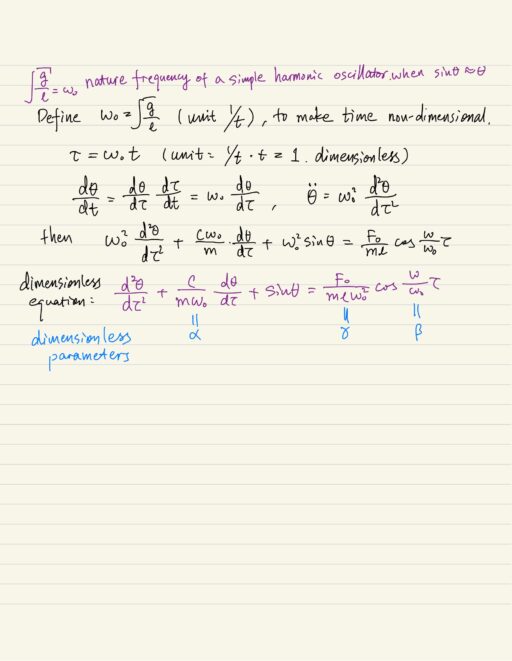 √(g/l) = ω₀ nature frequency of a simple harmonic oscillator when sinθ ≈ θ
Define ω₀ = √(g/l) (unit 1/t), to make time non-dimensional.
τ = ω₀t (unit: 1/t · t = 1. dimensionless)
dθ/dt = dθ/dτ dτ/dt = ω₀ dθ/dτ , θ̈ = ω₀² d²θ/dτ²
then ω₀² d²θ/dτ² + cω₀/m · dθ/dτ + ω₀² sinθ = F₀/ml cos ω/ω₀ τ
dimensionless equation: d²θ/dτ² + c/mω₀ dθ/dτ + sinθ = F₀/mlω₀² cos ω/ω₀ τ
dimensionless parameters = α = γ = β